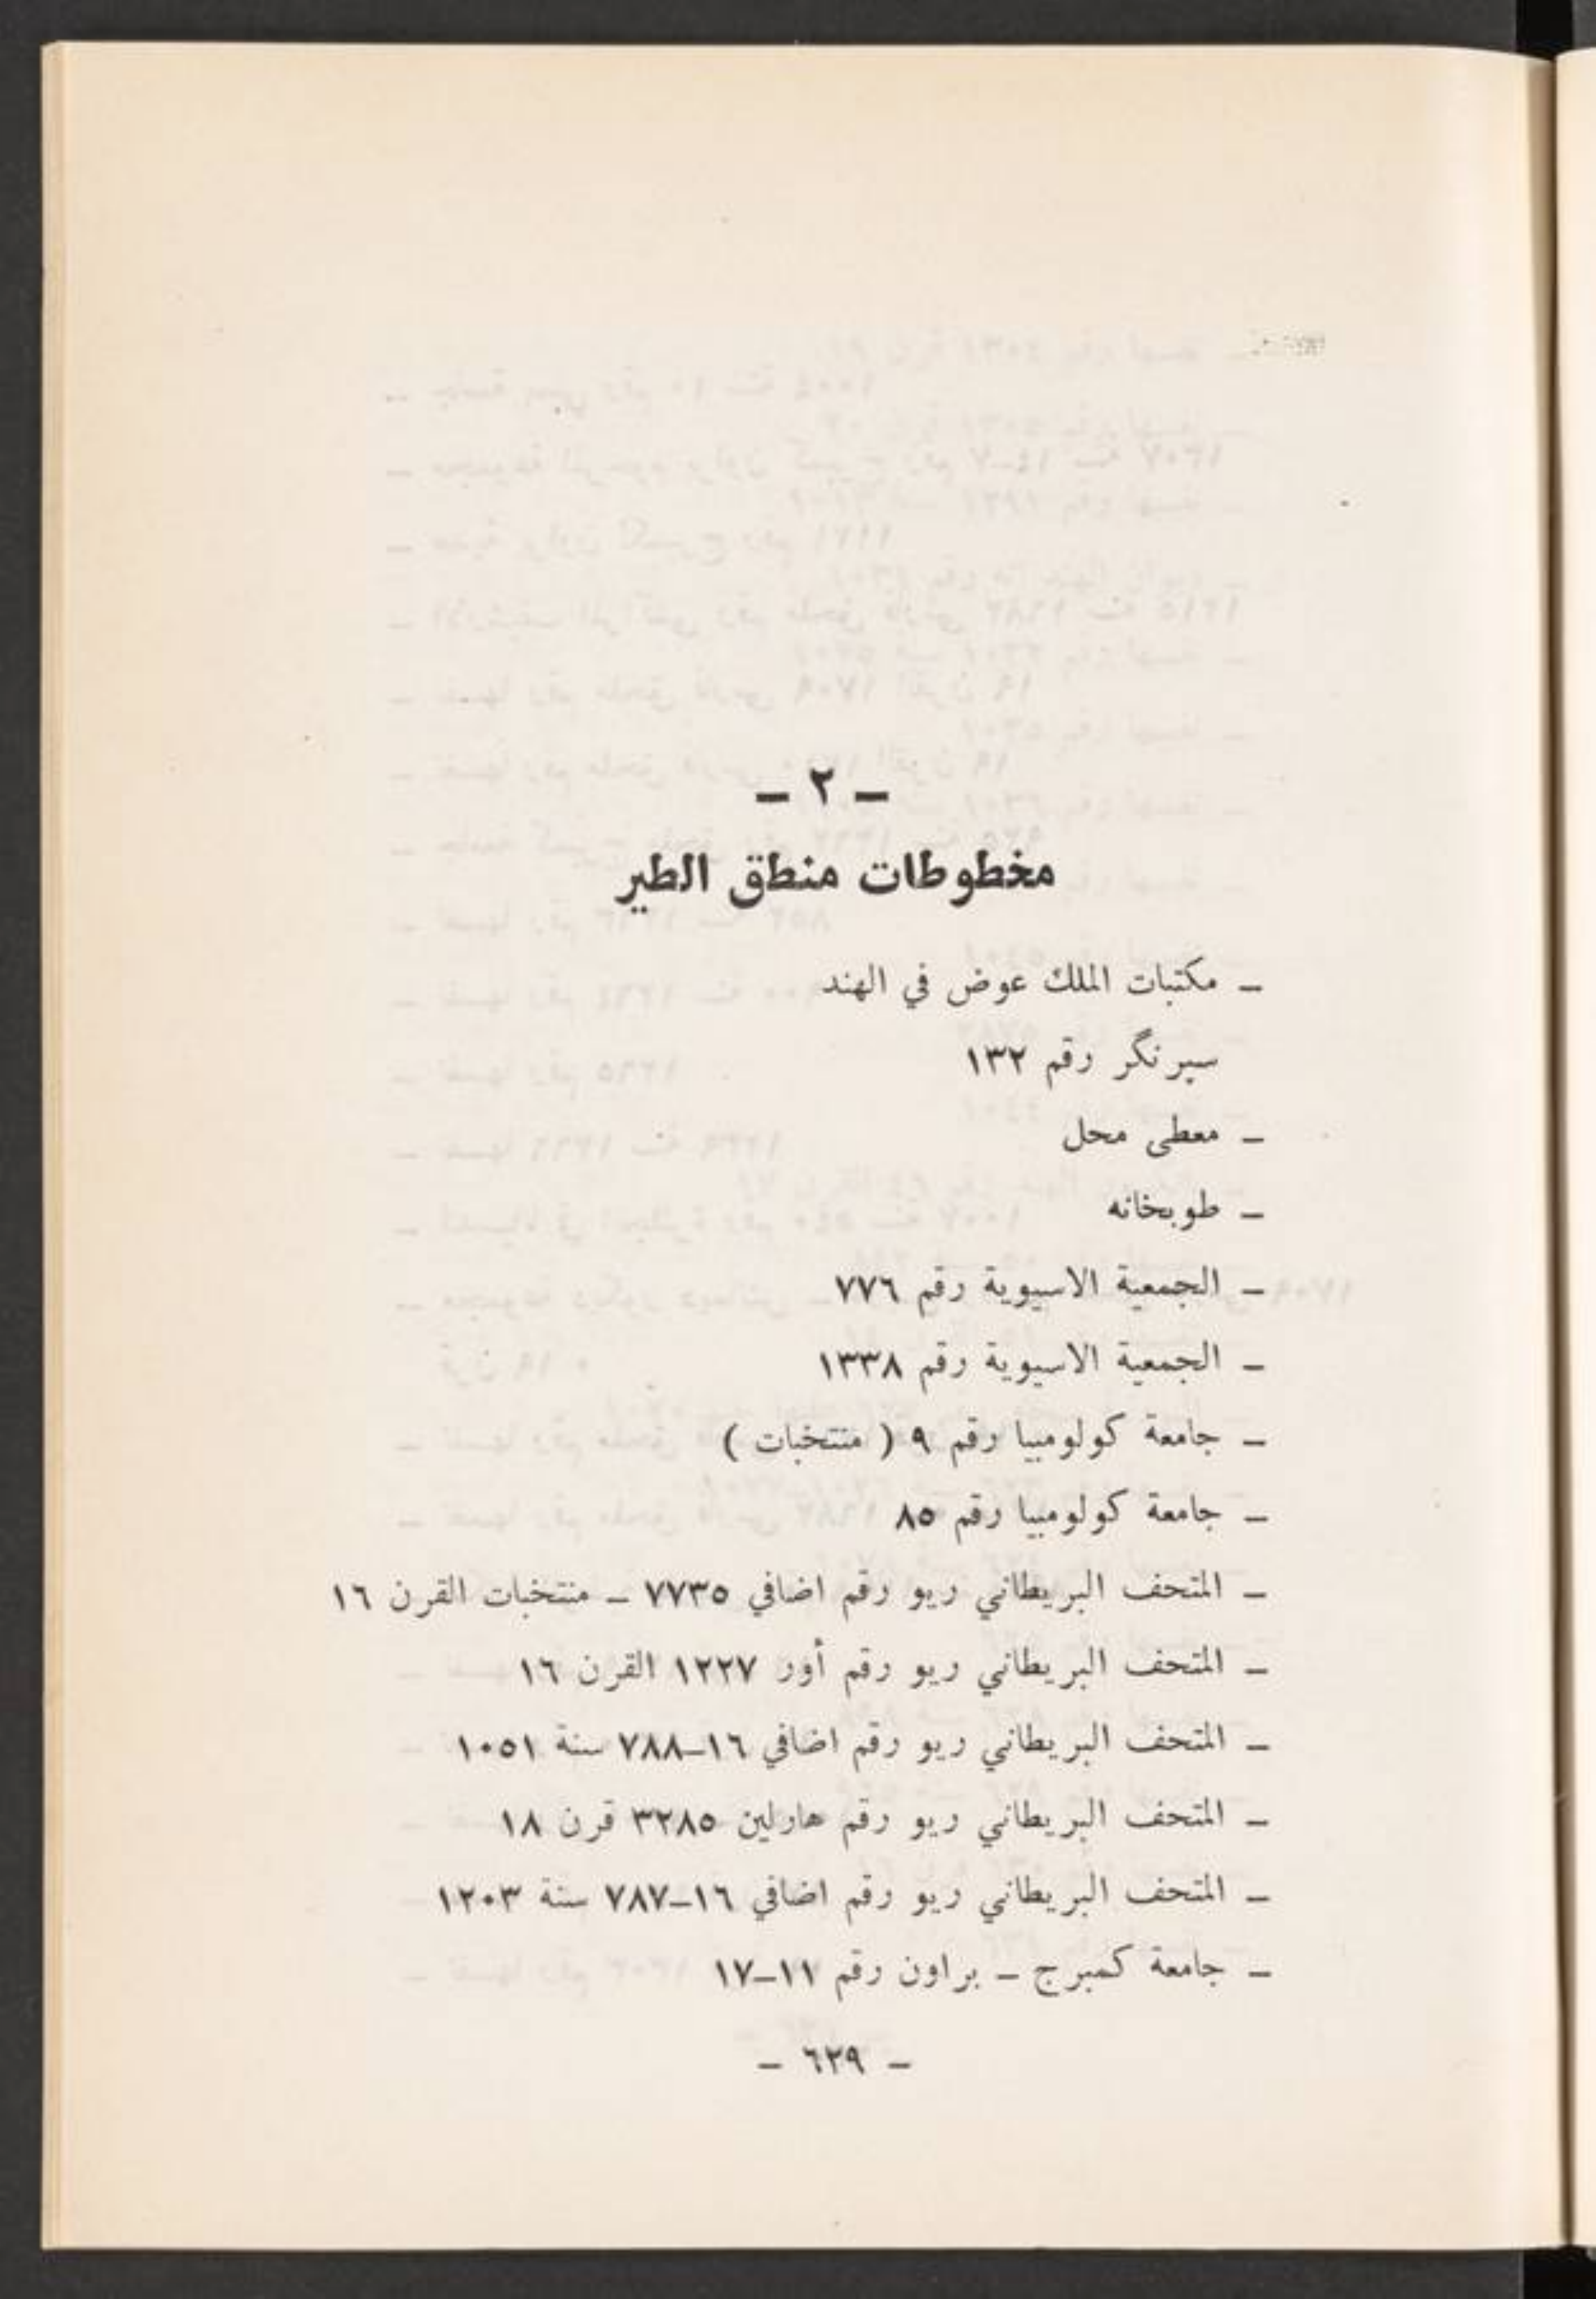 - ٢ -
مخطوطات منطق الطير
- مكتبات الملك عوض في الهند
سيرنگر رقم ١٣٢
- معطى محل
- طوبخانه
- الجمعية الاسيوية رقم ٧٧٦
- الجمعية الاسيوية رقم ١٣٣٨
- جامعة كولومبيا رقم ٩ ( منتخبات )
- جامعة كولومبيا رقم ٨٥
- المتحف البريطاني ريو رقم اضافي ٧٧٣٥ - منتخبات القرن ١٦
- المتحف البريطاني ريو رقم أور ١٢٢٧ القرن ١٦
- المتحف البريطاني ريو رقم اضافي ١٦-٧٨٨ سنة ١٠٥١
- المتحف البريطاني ريو رقم هارلين ٣٢٨٥ قرن ١٨
- المتحف البريطاني ريو رقم اضافي ١٦-٧٨٧ سنة ١٢٠٣
- جامعة كمبرج - براون رقم ١١-١٧
- ٦٢٩ -